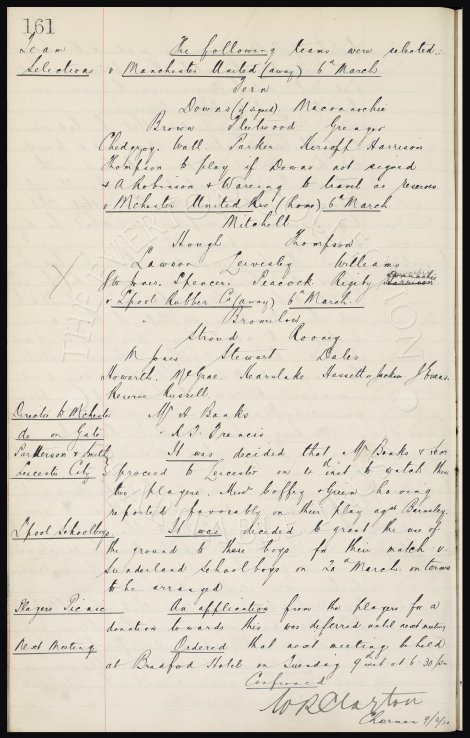 161
Team The following teams were selected:
Selections v Manchester United (away) 6th March
Fern
Downs (if signed) Maconnachie
Brown Fleetwood Grenyer
Chedgzoy Wall Parker Kirsopp Harrison
Thompson to play if Downs not signed
& A Robinson & Wareing to travel as reserves.
v M'chester United Res (home) 6th March
Mitchell
Hough Thompson
Lawson Leivesley Williams
Jw Jones. Spencer. Peacock. Rigby
v L'pool Rubber Co (away) 6th March.
Bromilow
Stroud Rooney
M Jones Stewart Dales
Howarth. McGrae. Kearslake Hassett or Jackson J Evans.
Reserve Russell.
Director to M'chester Mr A Banks
do on Gate " R. T. Francis
Parkerson & Smith It was decided that Mr Banks & Secy
Leicester City proceed to Leicester on 4th inst to watch these
two players. Messrs Coffey & Green having
reported favorably on their play agst Barnsley.
L'pool Schoolboys It was decided to grant the use of
the ground to these boys for their match v.
Sunderland Schoolboys on 20th March. on terms
to be arranged
Players Picnic An application from the players for a
donation towards this was deferred until next meeting
Next Meeting Ordered that next meeting be held
at Bradford Hotel on Tuesday 9th inst at 6:30 pm
Confirmed
W R Clayton
Chairman 9/3/20